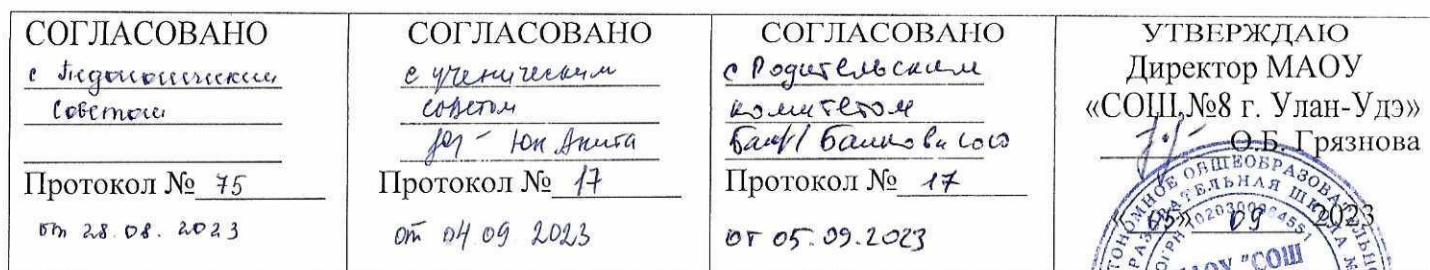 СОГЛАСОВАНО
с Педагогическим
советом
Протокол № 75
от 28.08.2023
СОГЛАСОВАНО
с ученическим
советом
Юн Анита
Протокол № 17
от 04 09 2023
СОГЛАСОВАНО
с Родительским
комитетом
Протокол № 17
от 05.09.2023
УТВЕРЖДАЮ
Директор МАОУ
«СОШ №8 г. Улан-Удэ»
О.Б. Грязнова
«05» 09 2023
МАОУ "СОШ